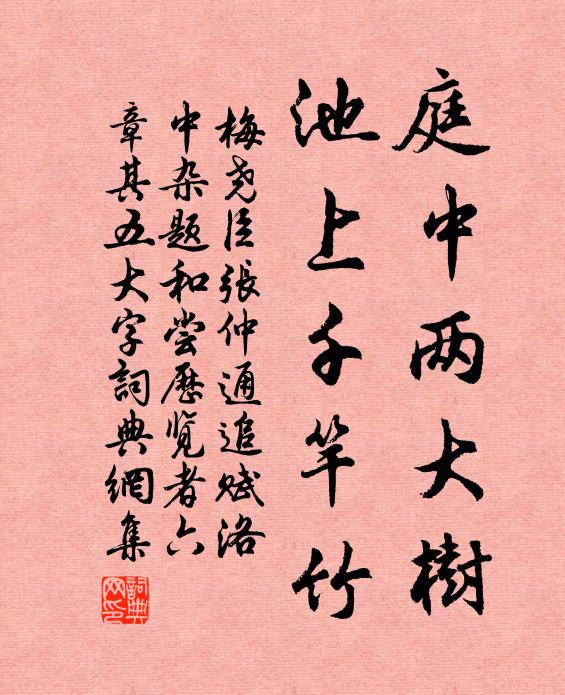 庭中两大樹
池上千竿竹
梅尧臣張仲通追赋洛
中杂题和尝歷览者六
章其五大字詞典網集
詞典
网印